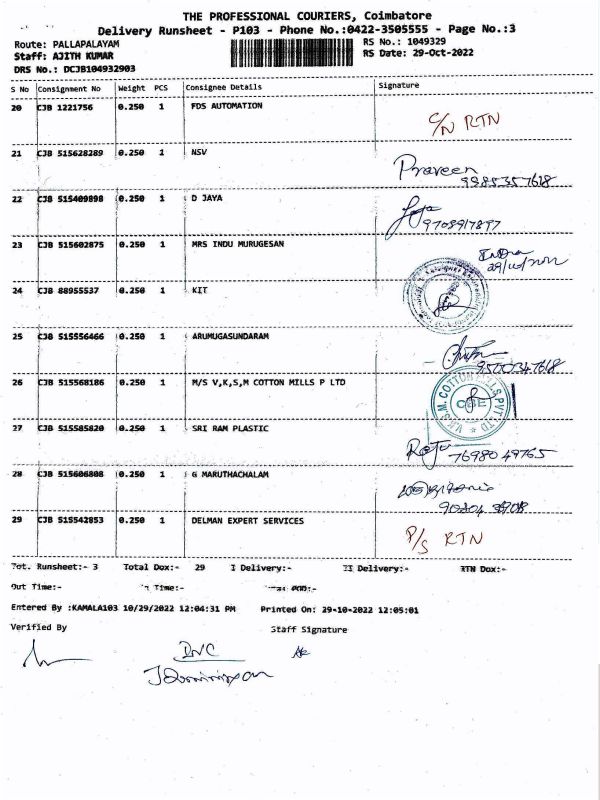 THE PROFESSIONAL COURIERS, Coimbatore
Delivery Runsheet - P103 - Phone No.:0422-3505555 - Page No.:3
Route: PALLAPALAYAM RS No.: 1049329
Staff: AJITH KUMAR RS Date: 29-Oct-2022
DRS No.: DCJB104932903
S No Consignment No Weight PCS Consignee Details Signature
20 CJB 1221756 0.250 1 FDS AUTOMATION C/N RTN
21 CJB 515628289 0.250 1 NSV Praveen
9985357618
22 CJB 515409898 0.250 1 D JAYA
9708917897
23 CJB 515602875 0.250 1 MRS INDU MURUGESAN
24 CJB 88955537 0.250 1 KIT
25 CJB 515556466 0.250 1 ARUMUGASUNDARAM
26 CJB 515568186 0.250 1 M/S V,K,S,M COTTON MILLS P LTD COTTON MILLS PVT LTD CBE
27 CJB 515585820 0.250 1 SRI RAM PLASTIC Raju 7698049765
28 CJB 515606808 0.250 1 G MARUTHACHALAM
29 CJB 515542853 0.250 1 DELMAN EXPERT SERVICES P/S RTN
Tot. Runsheet:- 3 Total Dox:- 29 I Delivery:- II Delivery:- RTN Dox:-
Out Time:- In Time:-
Entered By :KAMALA103 10/29/2022 12:04:31 PM Printed On: 29-10-2022 12:05:01
Verified By Staff Signature